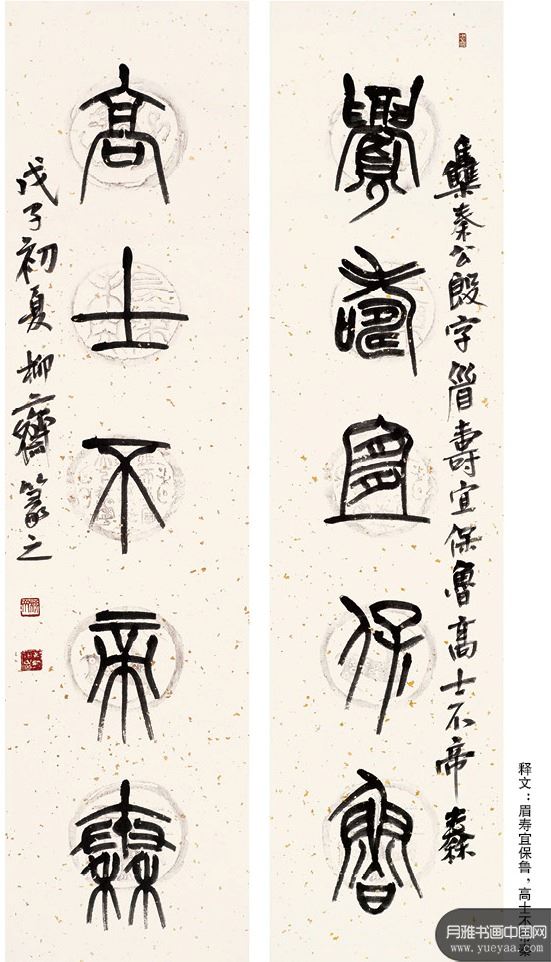 眉壽宜保魯
高士不帝秦
集秦公𣪘字眉壽宜保魯高士不帝秦
戊子初夏柳齋篆之
释文:眉寿宜保鲁,高士不帝秦
月雅书画中国网
www.yueyaa.com